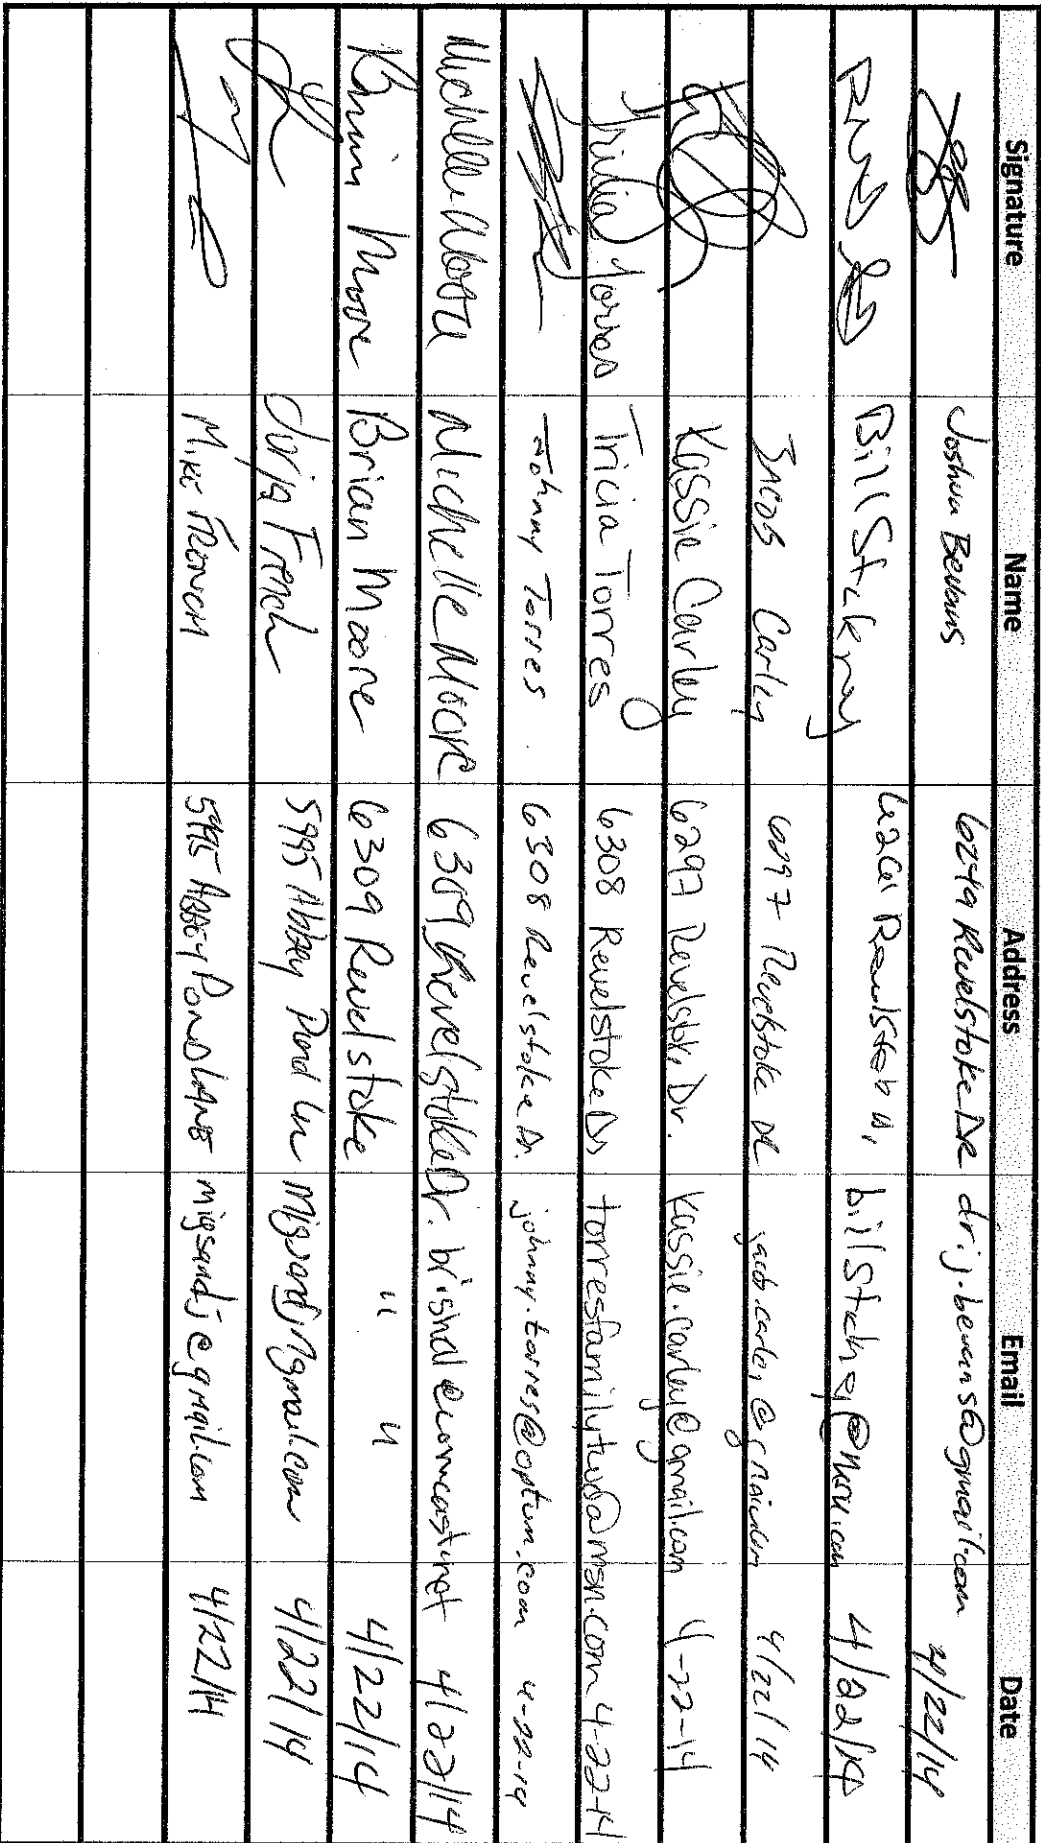 Signature Name Address Email Date
Joshua Bevans 6249 Revelstoke DR dr.j.bevans@gmail.com 4/22/14
Bill Stckney 4/22/14
Jacob Carley 6297 Revelstoke DR 4/22/14
Kassie Carley 6297 Revelstoke Dr. kassie.carley@gmail.com 4-22-14
Tricia Torres Tricia Torres 6308 Revelstoke Dr torresfamilytwo@msn.com 4-22-14
Johnny Torres 6308 Revelstoke Dr. johnny.torres@optum.com 4-22-14
Michelle Moore Michelle Moore 6309 Revelstoke Dr. brishal@comcast.net 4/22/14
Brian Moore Brian Moore 6309 Revelstoke " " 4/22/14
Jorja French 5995 Abbey Pond Ln migsandj@gmail.com 4/22/14
Mike French 5995 Abbey Pond Lane migsandj@gmail.com 4/22/14